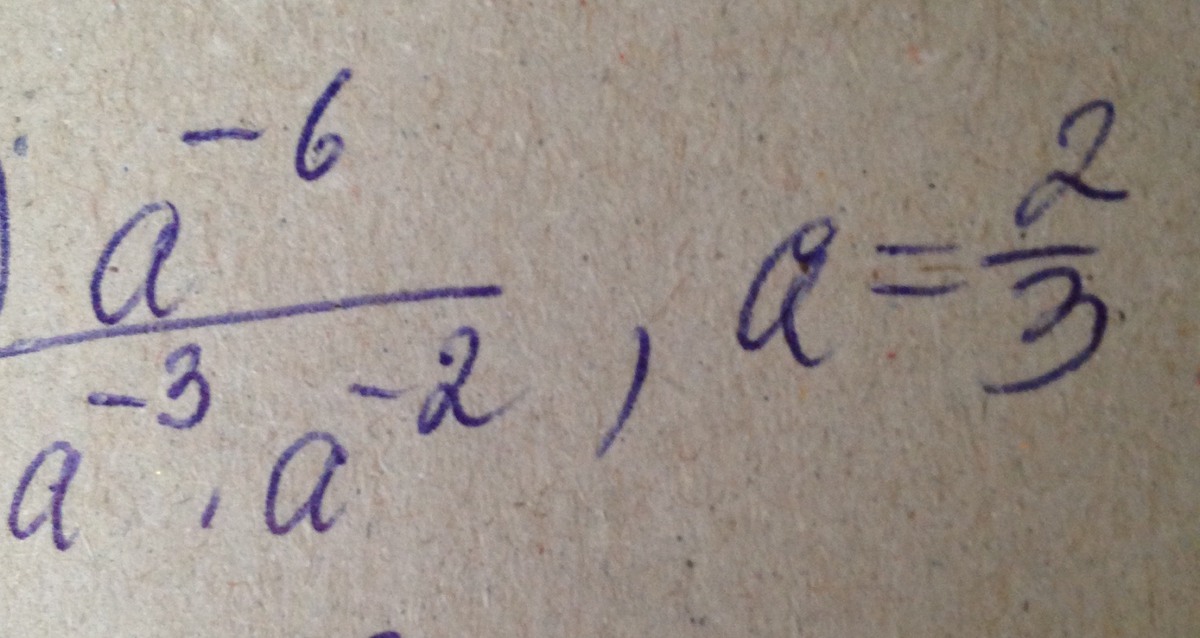 ) a⁻⁶
a⁻³ · a⁻² , a = 2/3